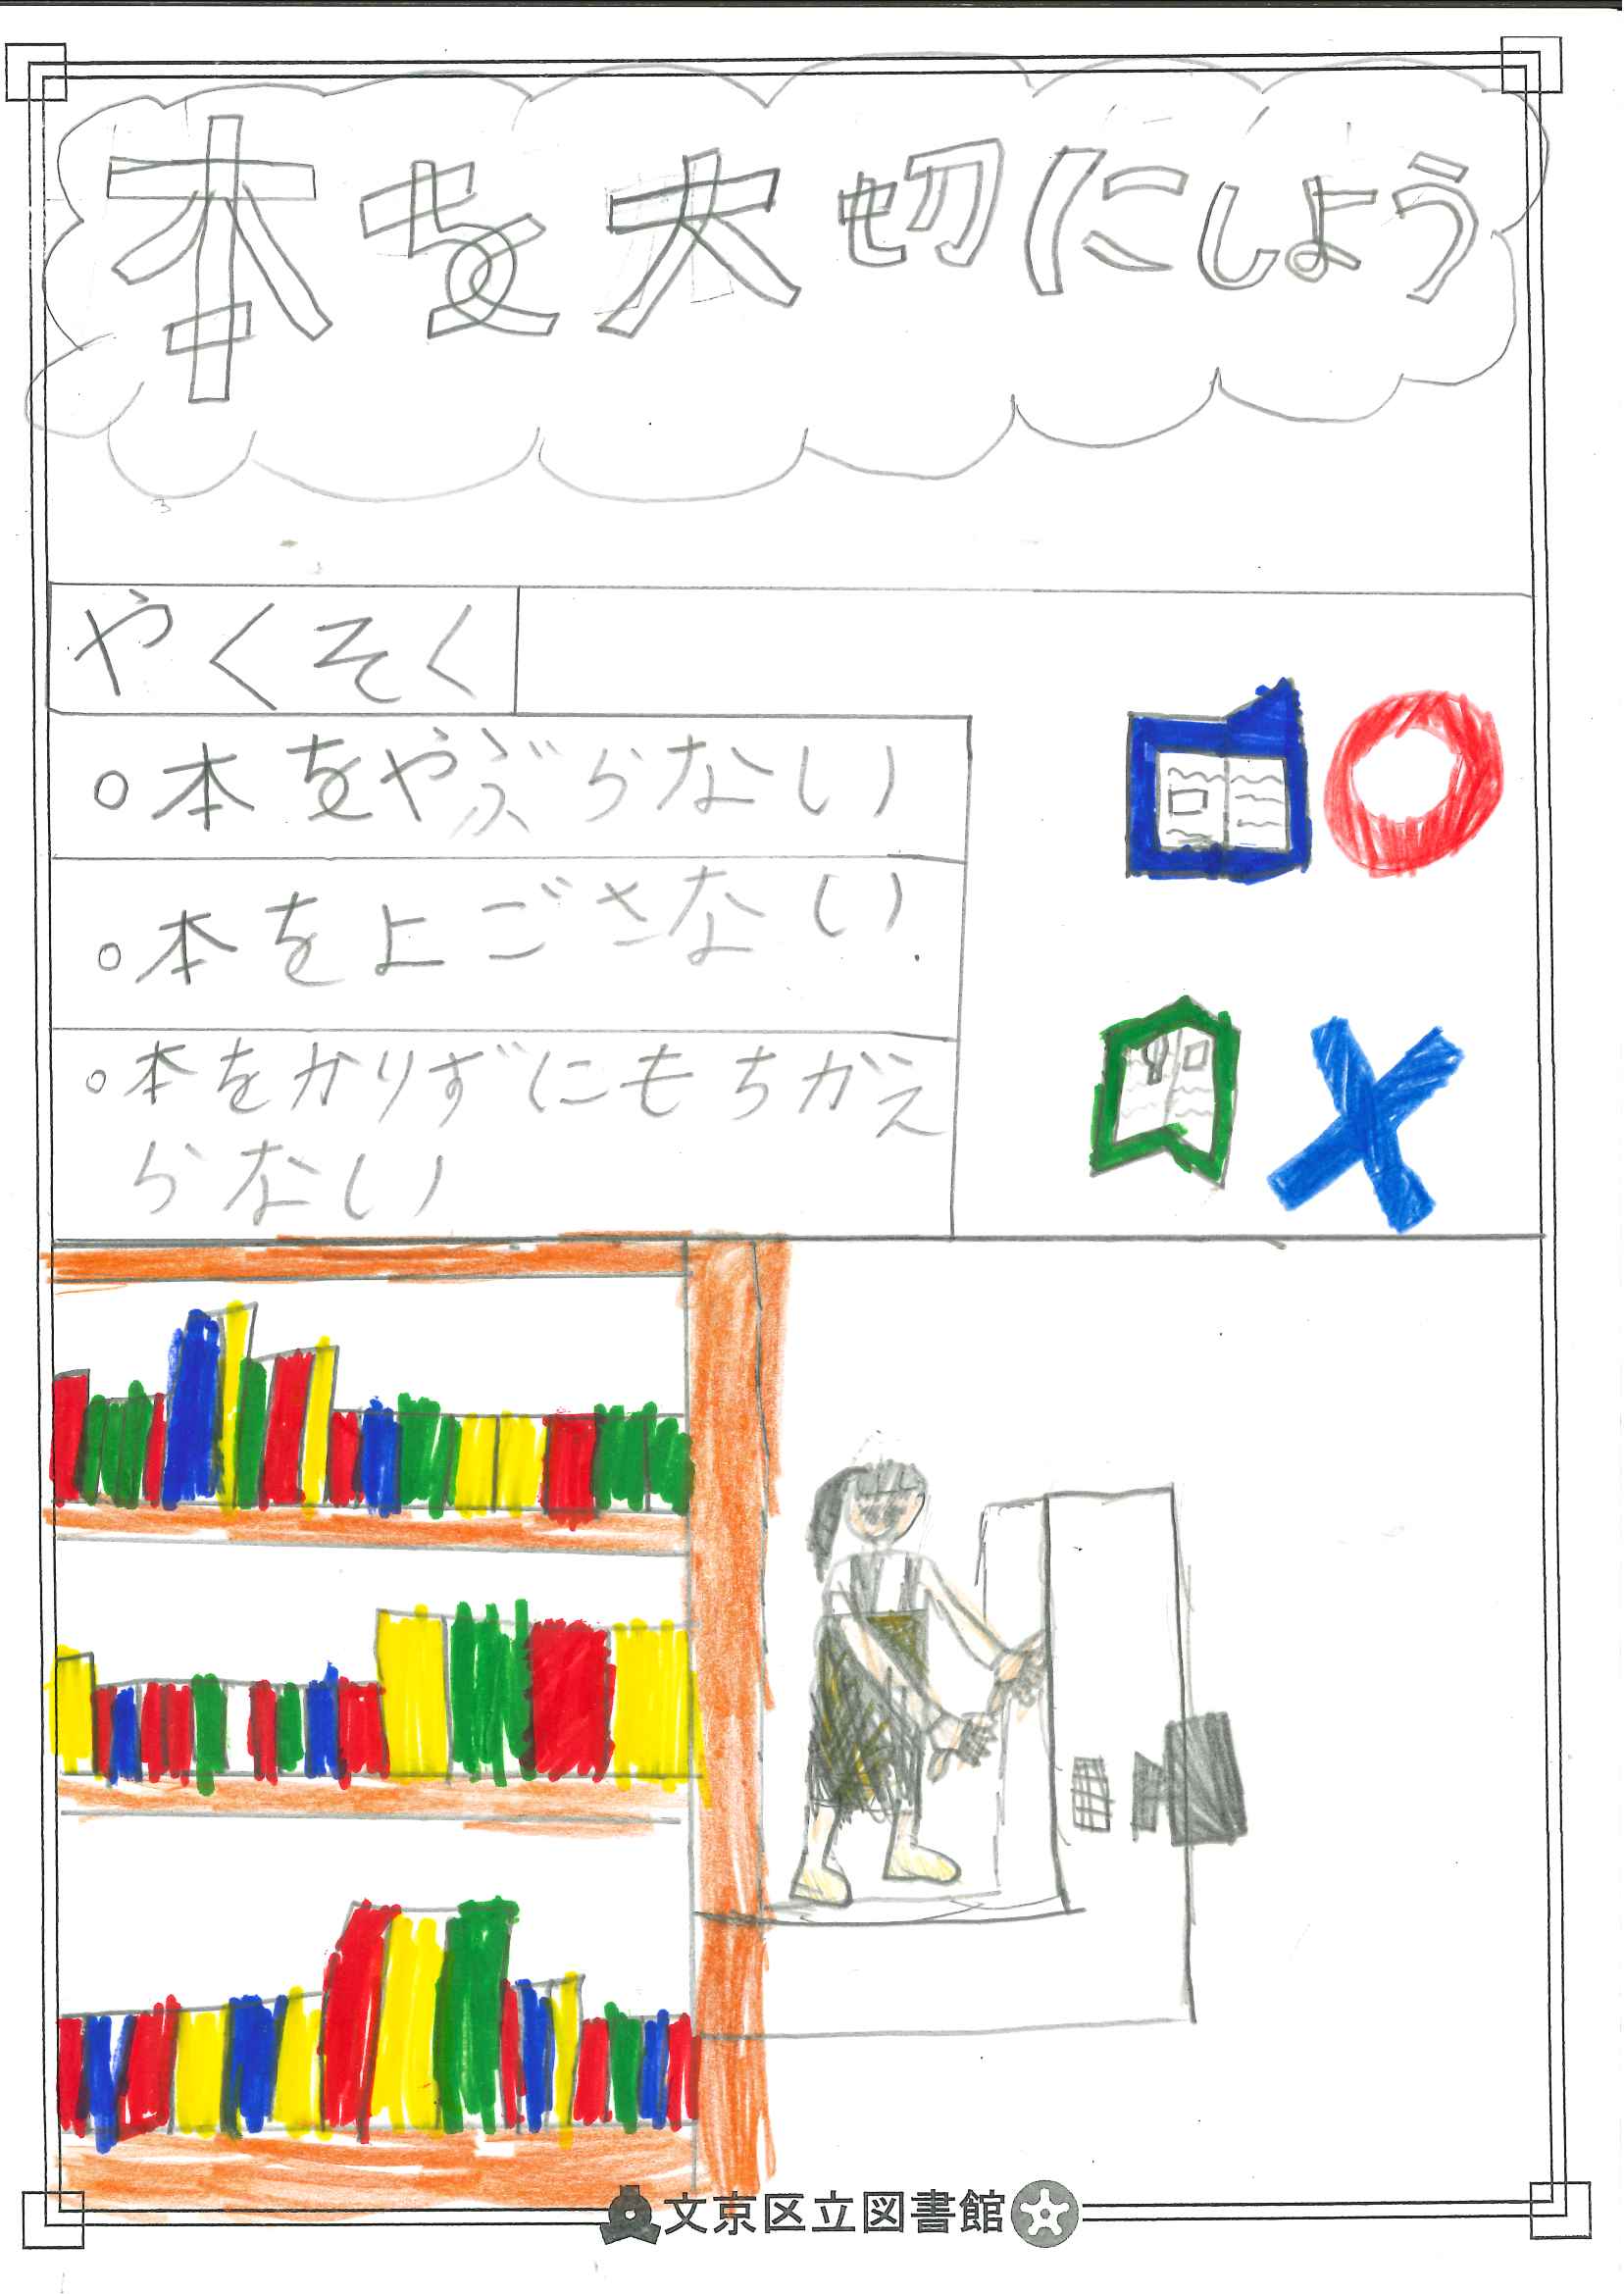 本を大切にしよう
やくそく
○本をやぶらない
○本をよごさない
○本をかりずにもちがえ
らない
文京区立図書館